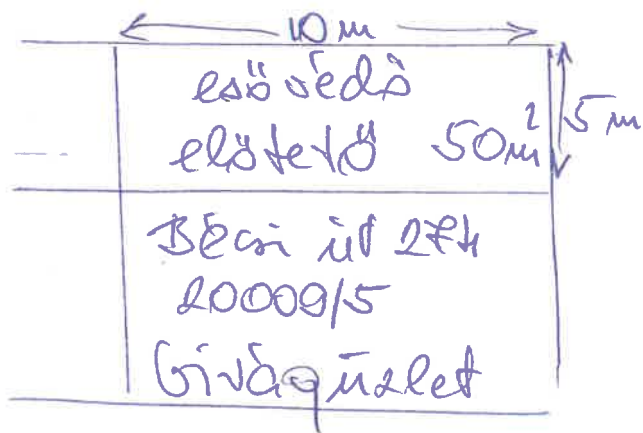 10 m
esővédő
előtető 50m² 5 m
Bécsi út 274
20009/5
virág üzlet